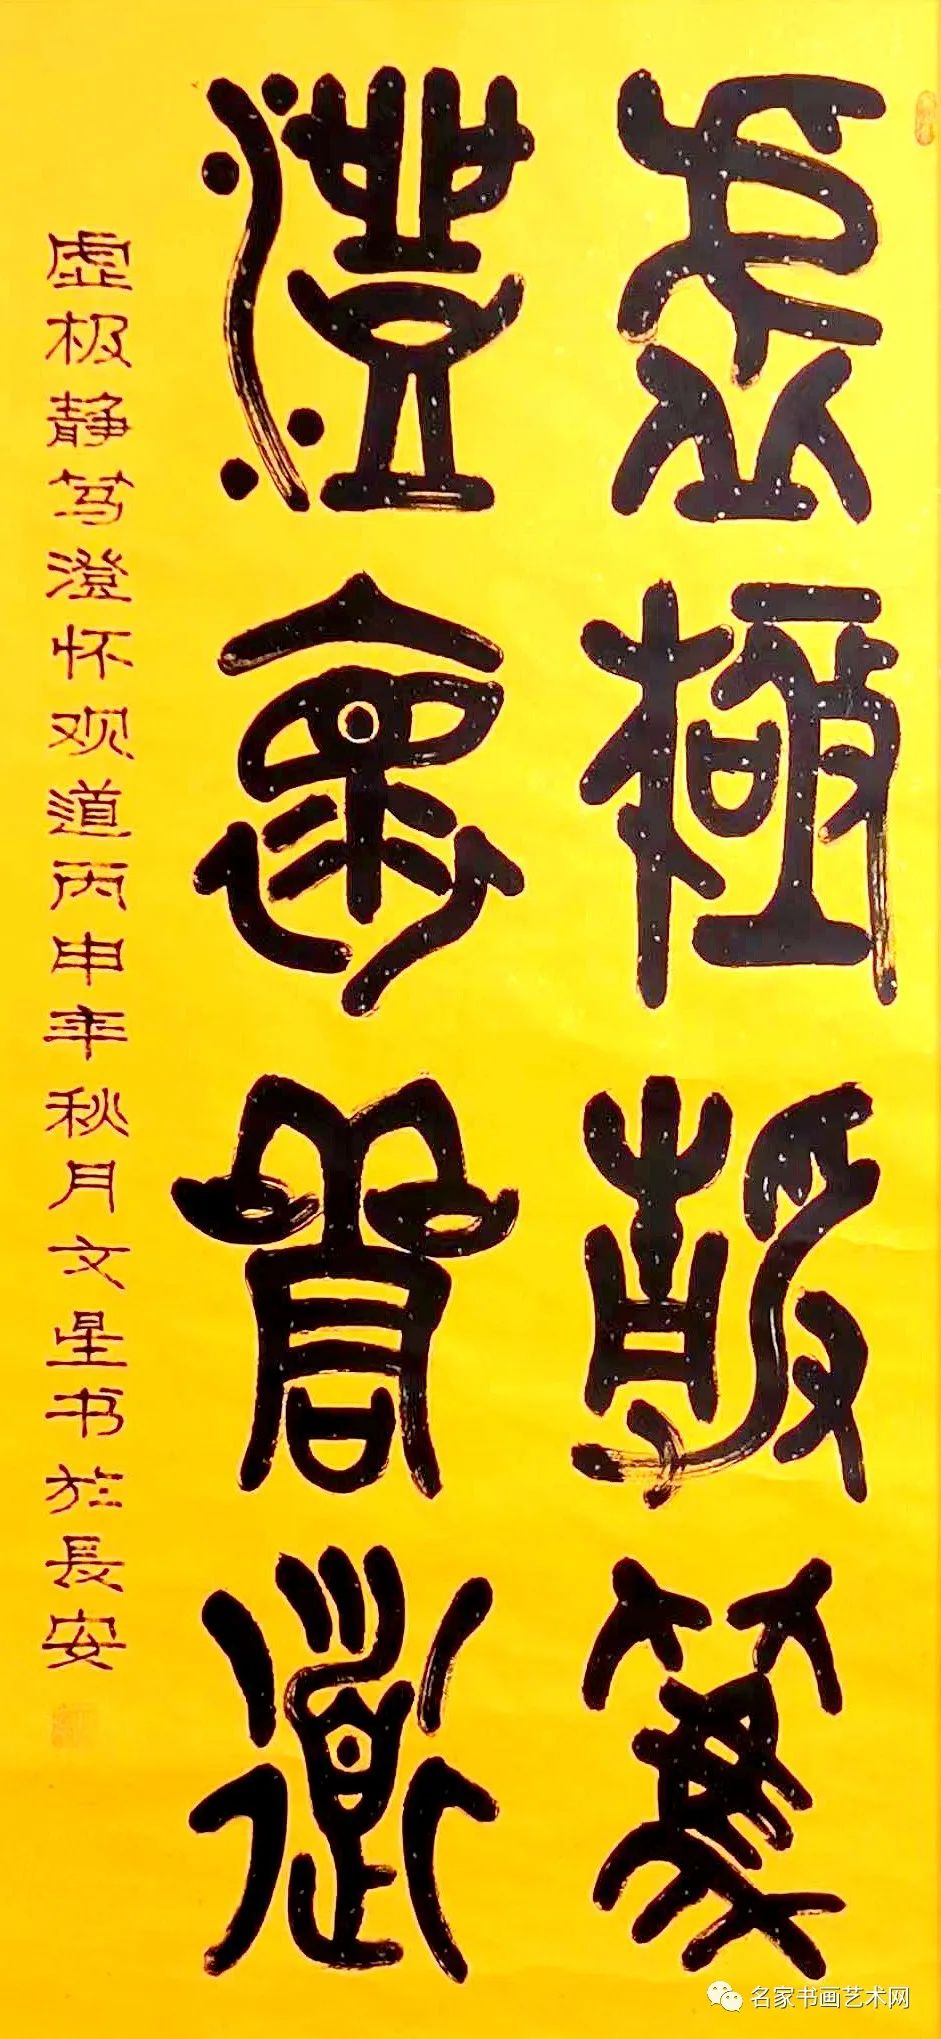 虚極靜篤
澄懷觀道
虚极静笃澄怀观道丙申年秋月文星书於長安
名家书画艺术网